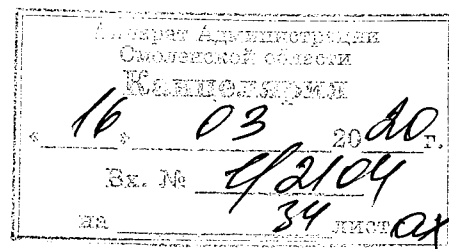 Аппарат Администрации
Смоленской области
Канцелярия
« 16 » 03 2020 г.
Вх. № 1/2104
на 34 листах